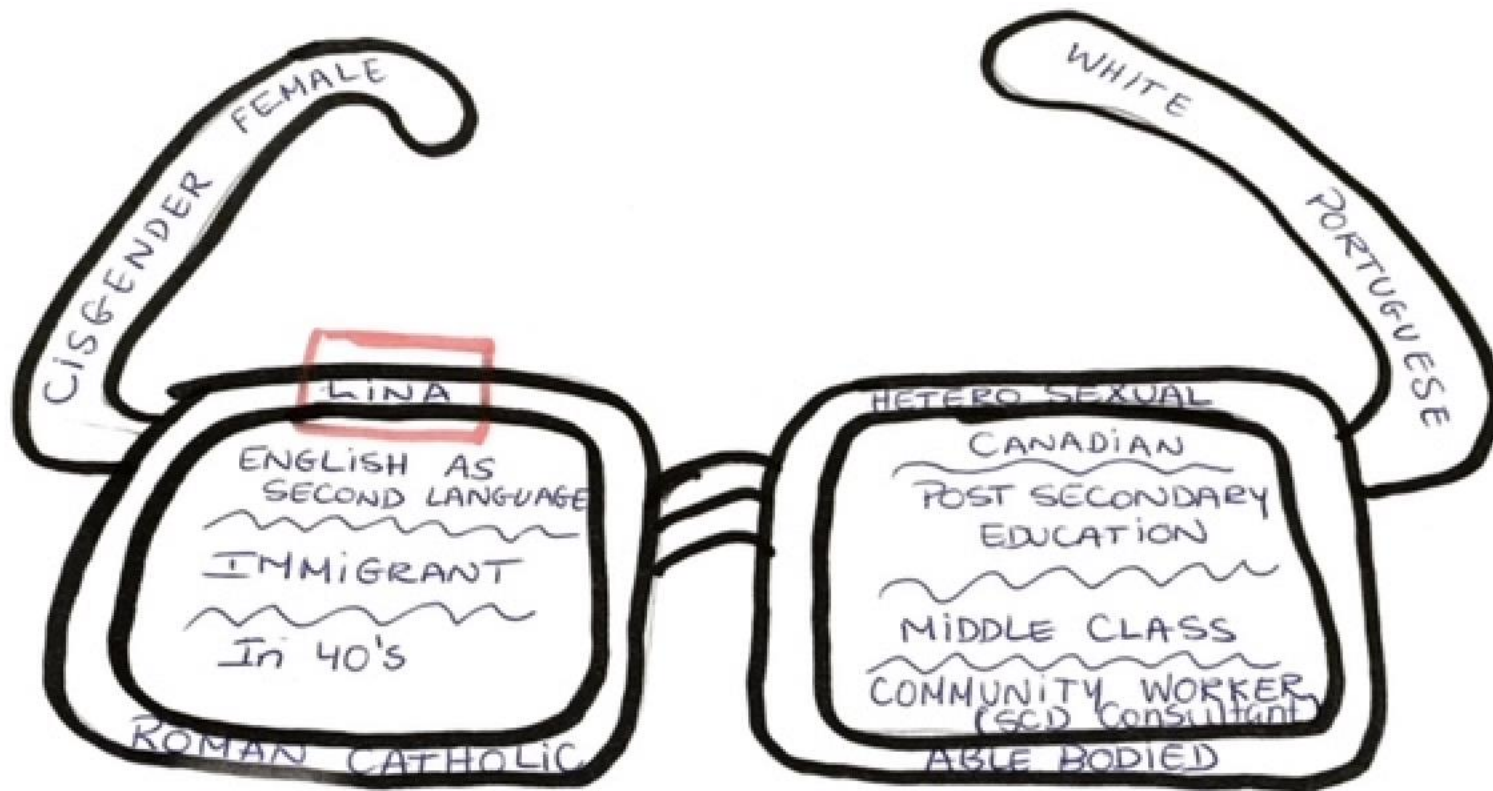 CISGENDER FEMALE
WHITE PORTUGUESE
LINA
ENGLISH AS
SECOND LANGUAGE
IMMIGRANT
In 40's
ROMAN CATHOLIC
HETERO SEXUAL
CANADIAN
POST SECONDARY
EDUCATION
MIDDLE CLASS
COMMUNITY WORKER
(SCD Consultant)
ABLE BODIED